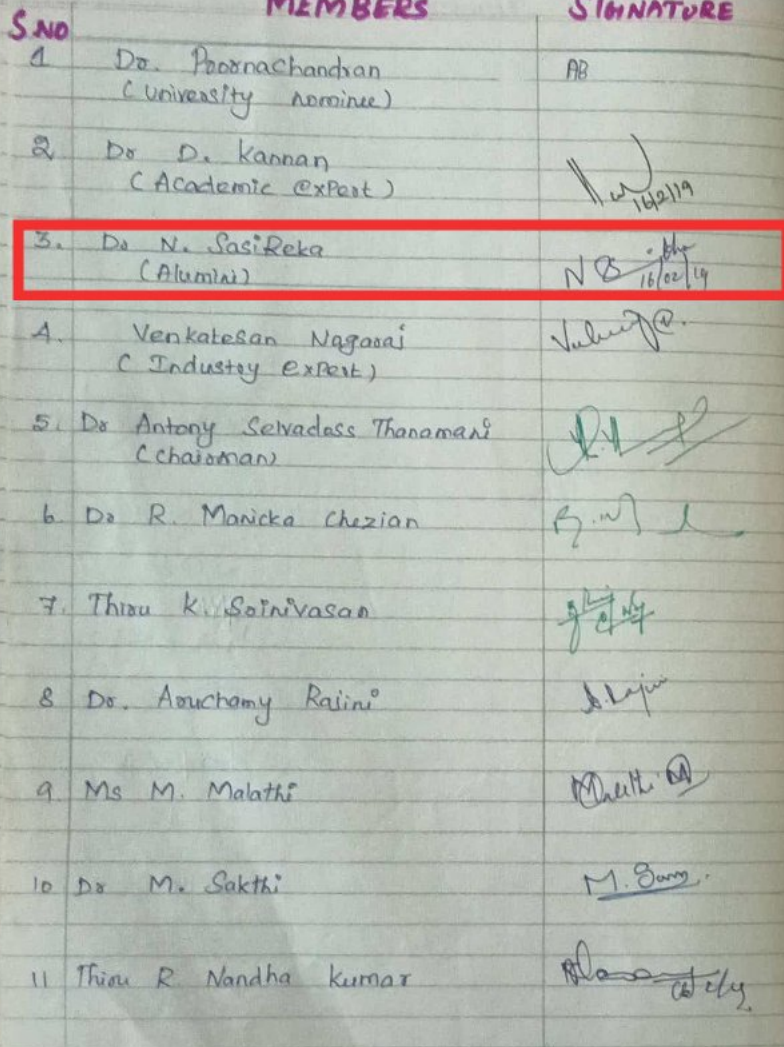 MEMBERS SIGNATURE
S.NO
1 Dr. Poornachandran AB
(University nominee)
2 Dr D. Kannan
(Academic expert) 16/2/19
3. Dr N. SasiReka
(Alumini) N 16/02/19
4. Venkatesan Nagaraj
(Industry expert)
5. Dr Antony Selvadass Thanamani
(chairman)
6 Dr R. Manicka Chezian
7. Thiru K. Srinivasan
8 Dr. Aruchamy Rajini A. Rajini
9 Ms M. Malathi Malathi M
10 Dr M. Sakthi
11 Thiru R Nandha Kumar